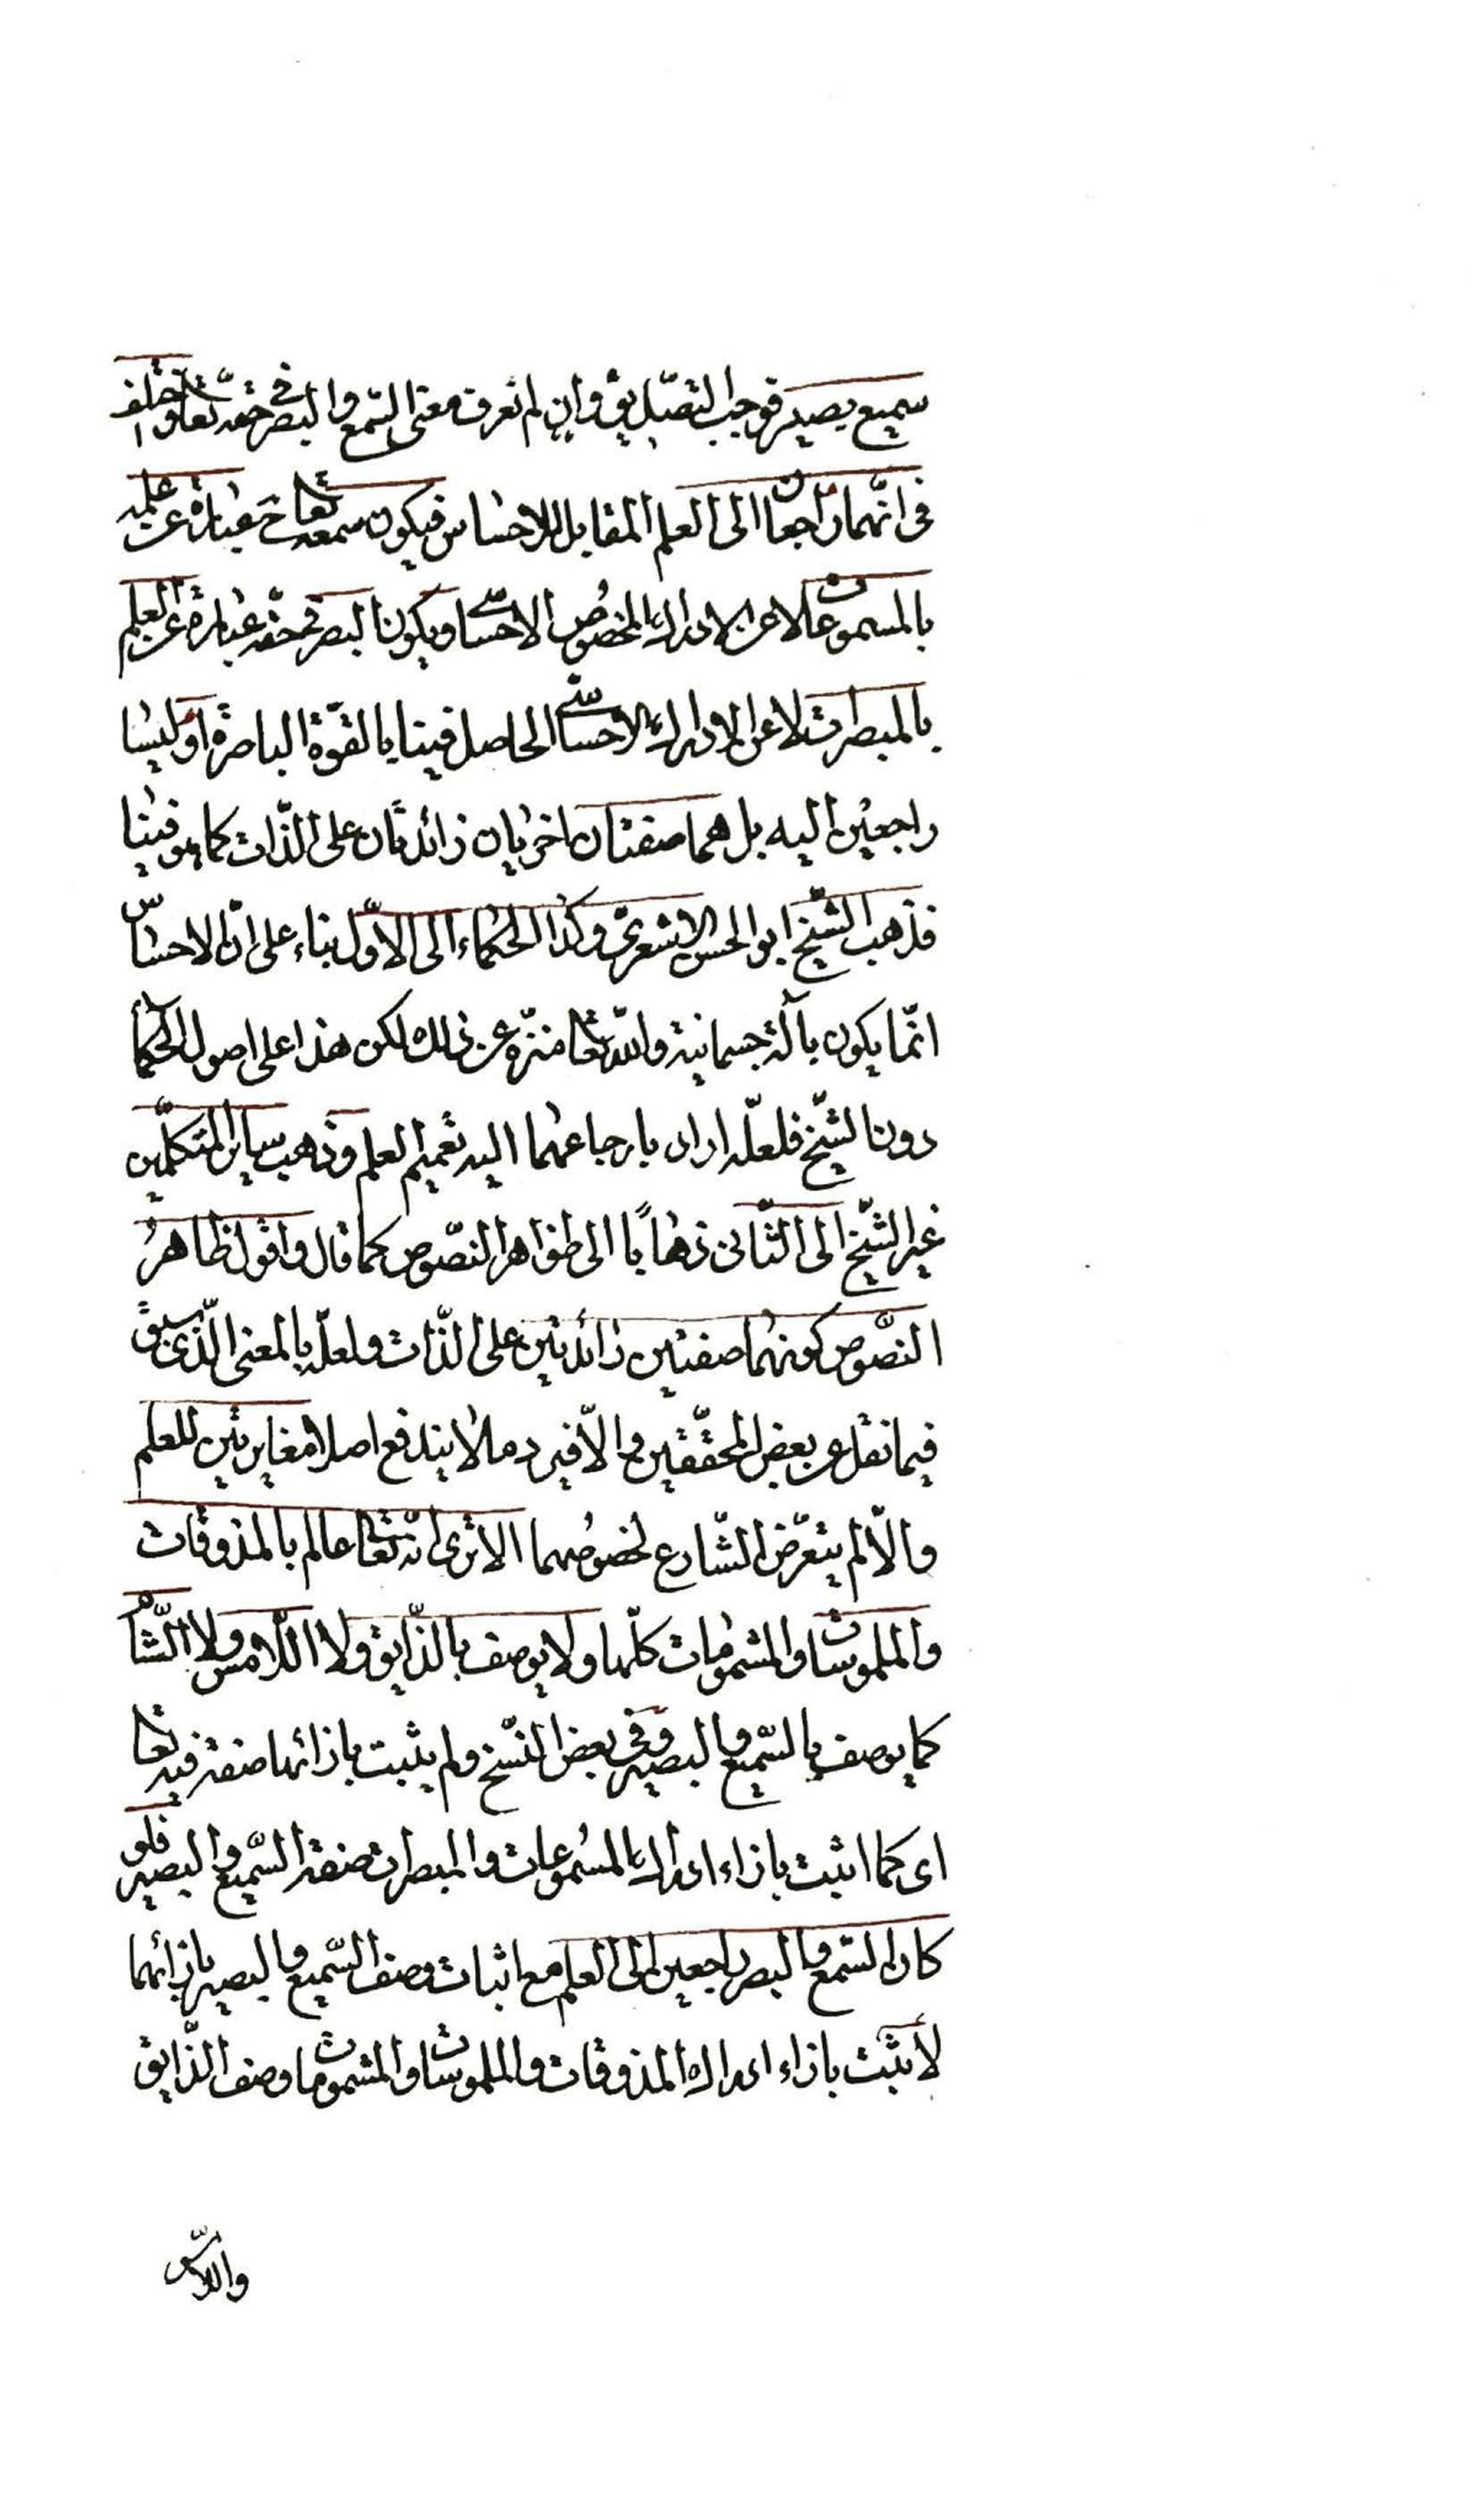 سميع بصير فوجب التصديق وان لم نعرف معنى السّمع والبصر فى حقّه تعالى واختلف
فى انّهما راجعان الى العلم المقابل للاحساس فيكون سمعه تعالى ح عبارة عن علمه
بالمسموعات لا عن الادراك المخصوص الاحساسىّ ويكون البصر فى حقّه عبارة عن العلم
بالمبصرات لا عن الادراك الاحساسىّ الحاصل فينا بالقوّة الباصرة او ليسا
راجعين اليه بل هما صفتان اخريان زائدتان على الذّات كما هو فينا
فذهب الشّيخ ابو الحسن الاشعرى وكذا الحكماء الى الاوّل بناء على انّ الاحساس
انّما يكون بآلة جسمانية والله تعالى منزّه عن ذلك لكن هذا على اصول الحكماء
دون الشّيخ فلعلّه اراد بارجاعهما اليه تعميم العلم وذهب ساير المتكلّمين
غير الشّيخ الى الثّانى ذهابًا الى ظواهر النصّوص كما قال واقول ظاهر
النصّوص كونهما صفتين زائدتين على الذّات ولعلّه بالمعنى الّذى سبق
فيما نقل عن بعض المحقّقين والّا فيرد مالا يندفع اصلا مغايرتين للعلم
والّا لم يتعرّض الشّارع لخصوصهما الا ترى انّه تعالى عالم بالمذوقات
والملموسات والمشمومات كلّها ولا يوصف بالذّايق ولا اللّامس ولا الشّامّ
كما يوصف بالسّميع والبصير وفى بعض النسّخ ولم يثبت بازائها صفة فيه تعالى
اى كما اثبت بازاء ادراك المسموعات والمبصرات صفة السّميع والبصير فلو
كان السّمع والبصر راجعين الى العلم مع اثبات وصف السّميع والبصير بازائهما
لأثبت بازاء ادراك المذوقات والملموسات والمشمومات وصف الذّايق
واللّامس